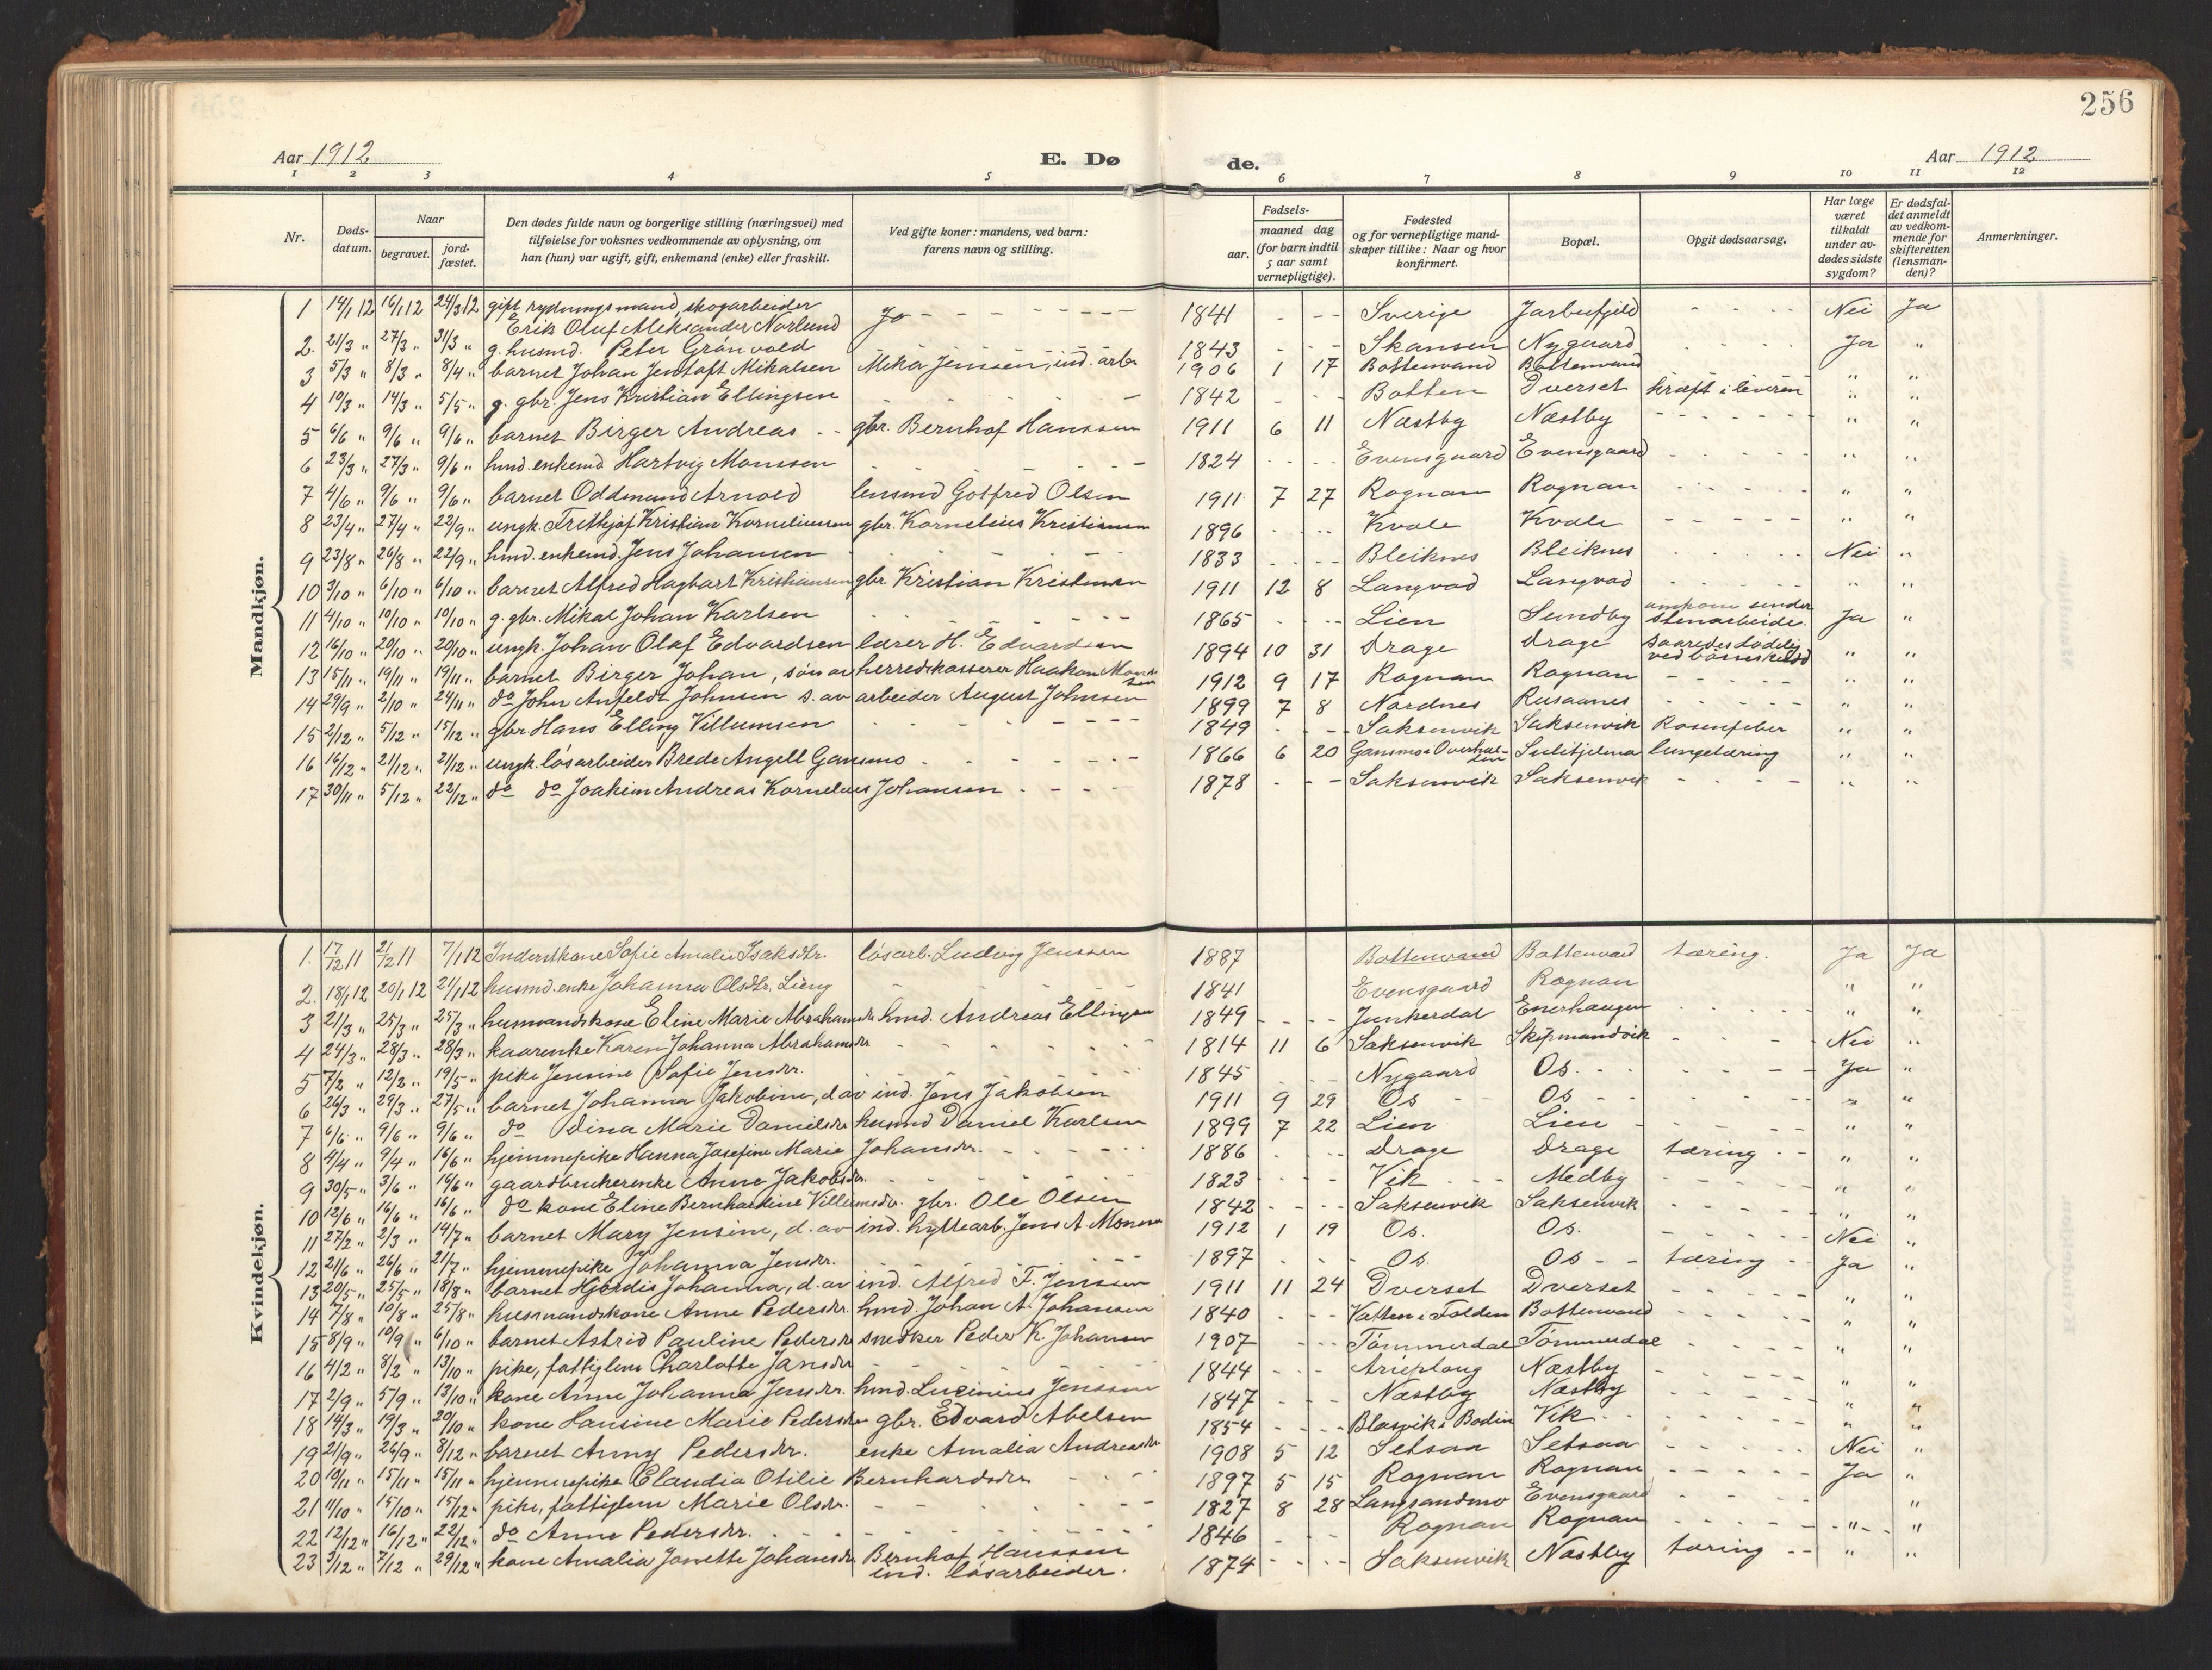 256
Aar 1912 E. Dø de. Aar 1912
1 2 3 4 5 6 7 8 9 10 11 12
Nr. Døds-datum. Naar begravet. jord-fæstet. Den dødes fulde navn og borgerlige stilling (næringsvei) med tilføielse for voksnes vedkommende av oplysning, om han (hun) var ugift, gift, enkemand (enke) eller fraskilt. Ved gifte koner: mandens, ved barn: farens navn og stilling. Fødsels- aar. maaned dag (for barn indtil 5 aar samt vernepligtige). Fødested og for vernepligtige mand-skaper tillike: Naar og hvor konfirmert. Bopæl. Opgit dødsaarsag. Har læge været tilkaldt under av-dødes sidste sygdom? Er dødsfal-det anmeldt av vedkom-mende for skifteretten (lensman-den)? Anmerkninger.
Mandkjøn.
1 14/1 12 16/1 12 24/3 12 gift rydningsmand, skogarbeider Erik Oluf Aleksander Norlund Ja - - - 1841 - - - Sverige Jarbufjeld - - - Nei Ja
2. 21/3 " 27/3 " 31/3 " g. husmd. Peter Grönvold 1843 - - - Skansen Nygaard - - - Ja "
3 5/3 " 8/3 " 8/4 " barnet Johan Jentoft Mikalsen Mika Jenssen, ind. arb. 1906 1 17 Bottenvand Bottenvand " "
4 10/3 " 14/3 " 5/5 " g. gbr. Jens Kristian Ellingsen - - - 1842 - - - Botten Dverset kræft i leveren " "
5 6/6 " 9/6 " 9/6 " barnet Birger Andreas - - gbr. Bernhof Hanssen 1911 6 11 Næstby Næstby - - - " "
6 23/3 " 27/3 " 9/6 " hmd. enkemd Hartvig Monssen - - - 1824 - - - Evensgaard Evensgaard - - - " "
7 4/6 " 9/6 " 9/6 " barnet Oddmund Arnold lensmd Gotfred Olsen 1911 7 27 Rognan Rognan - - - " "
8 23/4 " 27/4 " 22/9 " ungk. Frithjof Kristian Korneliussen gbr. Kornelius Kristiansen 1896 - - - Kvale Kvale - - - " "
9 23/8 " 26/8 " 22/9 " hmd. enkemd. Jens Johansen - - - 1833 - - - Bleiknes Bleiknes - - - Nei "
10 3/10 " 6/10 " 6/10 " barnet Alfred Hagbart Kristiansen gbr. Kristian Kristensen 1911 12 8 Langvad Langvad - - - " "
11 4/10 " 10/10 " 10/10 " g. gbr. Mikal Johan Karlsen - - - 1865 - - - Lien Sundby omkom under stenarbeide. Ja "
12 16/10 " 20/10 " 20/10 " ungk. Johan Olaf Edvardsen lærer H. Edvardsen 1894 10 31 Drage Drage saaredes dødelig ved bösseskud " "
13 15/11 " 19/11 " 19/11 " barnet Birger Johan, søn av herredskasserer Haakon Monssen 1912 9 17 Rognan Rognan - - - " "
14 29/9 " 2/10 " 24/11 " do John Anfeldt Johnsen s. av arbeider August Johnsen 1899 7 8 Nordnes Rusaanes - - - " "
15 2/12 " 5/12 " 15/12 " gbr Hans Elling Villumsen - - - 1849 - - - Saksenvik Saksenvik Rosenfeber " "
16 16/12 " 21/12 " 21/12 " ungk. løsarbeider Brede Angell Gansmo - - - 1866 6 20 Gansmo i Overhalden Sulitjelma lungetæring " "
17 30/11 " 5/12 " 22/12 " do do Joakim Andreas Kornelius Johansen - - - 1878 - - - Saksenvik Saksenvik - - - " "
Kvindekjøn.
1. 17/12 11 21/12 11 7/1 12 Inderstkone Sofie Amalie Isaksdtr. løsarb. Ludvig Jenssen 1887 Bottenvand Bottenvand tæring. Ja Ja
2. 18/1 12 20/1 12 21/1 12 husmd. enke Johanna Olsdtr. Lieng - - 1841 Evensgaard Rognan " "
3 21/3 " 25/3 " 25/3 " husmandskone Eline Marie Abrahamsdtr hmd. Andreas Ellingsen 1849 - - - Junkerdal Enerhaugen - - - " "
4 24/3 " 28/3 " 28/3 " kaarenke Karen Johanna Abrahamsdtr - - - 1814 11 6 Saksenvik Skipmandvik - - - Nei "
5 7/2 " 12/2 " 19/5 " pike Jensine Sofie Jensdtr. - - - 1845 - - - Nygaard Os. - - - Ja "
6 26/3 " 29/3 " 27/5 " barnet Johanna Jakobine, d av ind. Jens Jakobsen 1911 9 29 Os - Os - - " "
7 6/6 " 9/6 " 9/6 " do Dina Marie Danielsdtr husmd Daniel Karlsen 1899 7 22 Lien Lien - - - " "
8 4/4 " 9/4 " 16/6 " hjemmepike Hanna Josefine Marie Johansdtr. - - - 1886 - - - Drage Drage tæring - - " "
9 30/5 " 3/6 " 16/6 " gaardbrukerenke Anne Jakobsdtr. - - - 1823 - - - Vik - - Medby " "
10 12/6 " 16/6 " 16/6 " do kone Eline Bernhardine Villumsdtr. gbr. Ole Olsen 1842 - - - Saksenvik Saksenvik " "
11 27/2 " 2/3 " 14/7 " barnet Mary Jensine, d. av ind. hyttearb. Jens A. Monsen 1912 1 19 Os. Os. - - - Nei "
12 21/6 " 26/6 " 21/7 " hjemmepike Johanna Jensdtr. - - - 1897 - - - Os. Os - - tæring - Ja "
13 20/5 " 25/5 " 18/8 " barnet Hjördis Johanna, d. av ind. Alfred F. Jenssen 1911 11 24 Dverset Dverset - - - " "
14 7/8 " 10/8 " 25/8 " husmandskone Anne Pedersdtr. hmd. Johan A. Johansen 1840 - - - Vatten i Folden Bottenvand - - - " "
15 8/9 " 10/9 " 6/10 " barnet Astrid Pauline Pedersdtr snedker Peder K. Johansen 1907 - - - Tömmerdal Tömmerdal - - - " "
16 4/2 " 8/2 " 13/10 " pike, fattiglem Charlotte Jansdtr - - - 1844 - - - Arieploug Næstby - - - " "
17 2/9 " 5/9 " 13/10 " kone Anne Johanna Jensdtr. hmd. Jenssen 1847 - - - Næstby Næstby - - - " "
18 14/3 " 19/3 " 20/10 " kone Hansine Marie Pedersdtr gbr. Edvard Abelsen 1854 - - - Blasvik i Bodin Vik - - - " "
19 21/9 " 26/9 " 8/12 " barnet Anny Pedersdtr. enke Amalia Andreasdtr 1908 5 12 Setsaa Setsaa - - - Nei "
20 10/11 " 15/11 " 15/11 " hjemmepike Claudia Otilie Bernhardsdtr - - - 1897 5 15 Rognan Rognan - - - Ja "
21 11/10 " 15/10 " 15/12 " pike, fattiglem Marie Olsdtr. - - - 1827 8 28 Langsandmo Evensgaard - - - "
22 12/12 " 16/12 " 22/12 " do Anne Pedersdtr. - - - 1846 - - - Rognan Rognan - - - " "
23 3/12 " 7/12 " 29/12 " kone Amalia Jonette Johansdtr Bernhof Hanssen ind. løsarbeider. 1874 - - - Saksenvik Næstby tæring - - " "